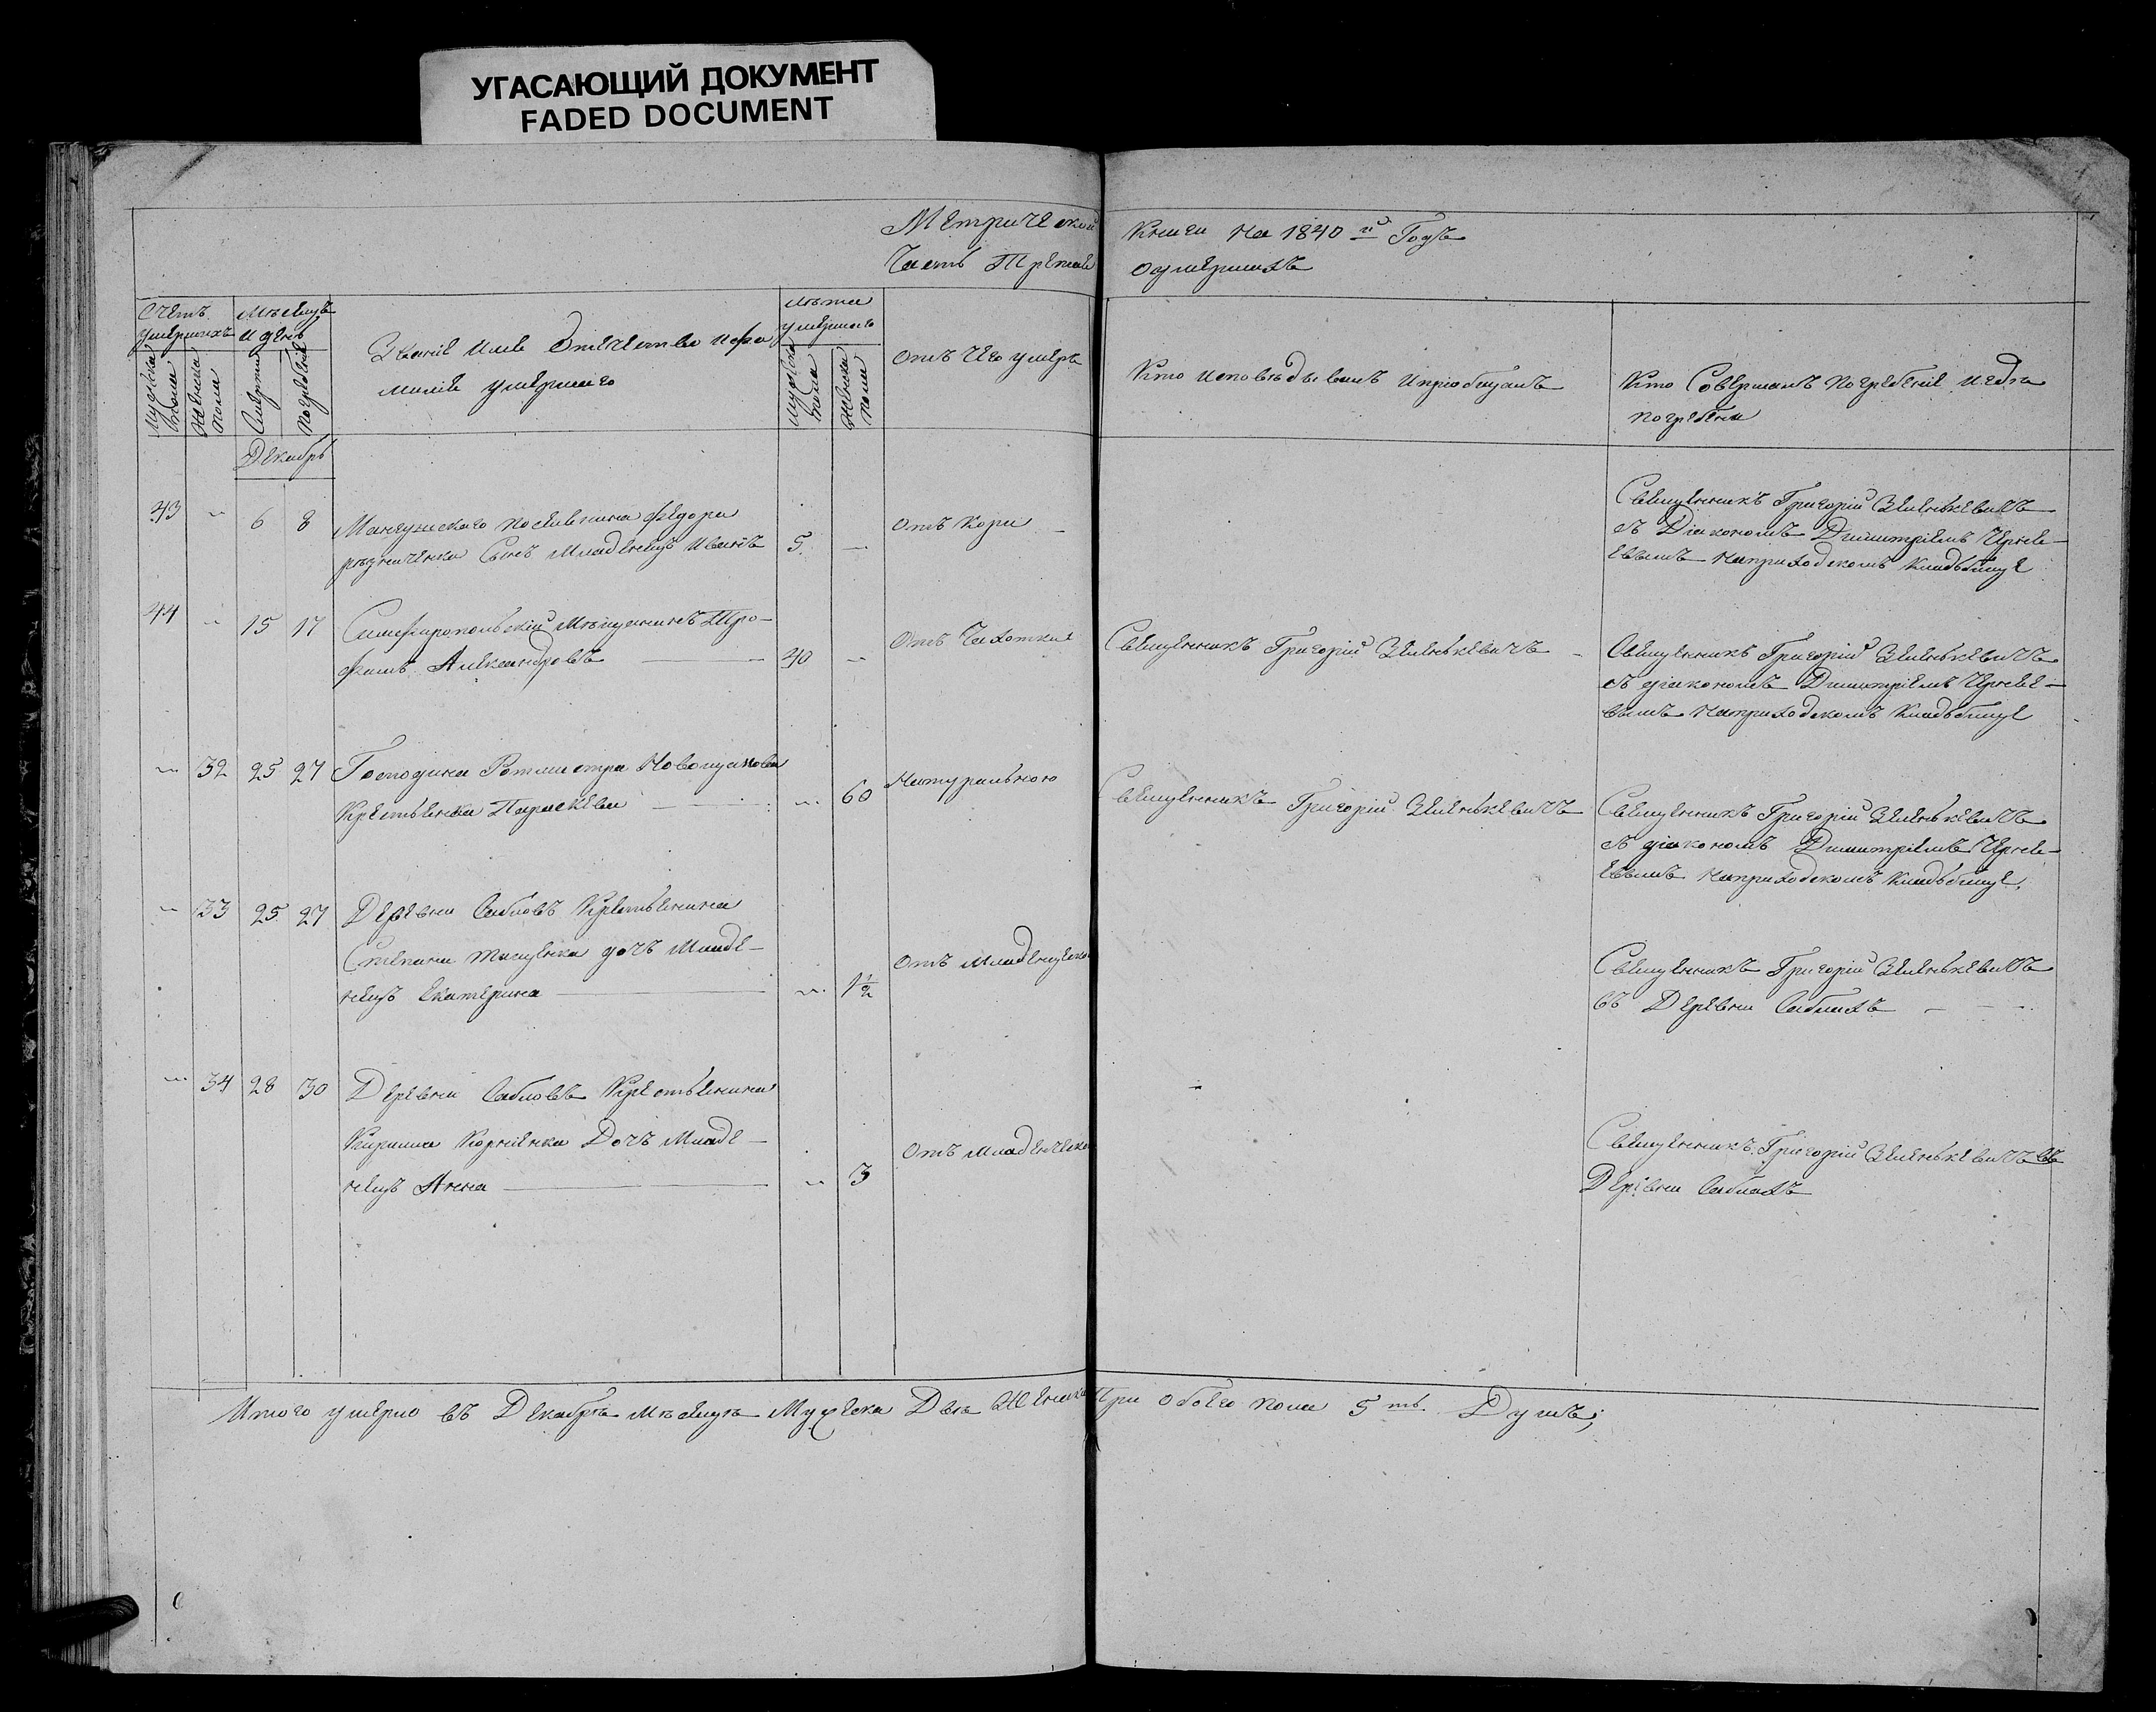 УГАСАЮЩИЙ ДОКУМЕНТ
FADED DOCUMENT
Метрической Книги на 1840 й Годъ
Часть Третья оумершихъ
Счетъ умершихъ
Мужеска пола
Женска пола
Мѣсяцъ и день
Смерти
погребенія
Званіе имя Отечество ифа
милія умершаго
Лѣта умершаго
Мужеска пола
Женска пола
Отъ Чего умеръ
Кто исповѣдывалъ ипріобщалъ
Кто Совершалъ погребеніе игдѣ
погребены
Декабрь
43 6 8 Мангушскаго поселянина Федора
Сынъ Младенецъ Иванъ 5
Отъ Кори
Священникъ Григорій Зеленкевичъ
съ Діакономъ Димитріемъ Черне-
евымъ наприходскомъ Кладбище
44 15 17 Симферопольскій Мѣщанинъ Тро-
фимъ Александровъ 40
Отъ Чахотки
Священникъ Григорій Зеленкевичъ
Священникъ Григорій Зеленкевичъ
съ діакономъ Димитріемъ Чернее-
вымъ наприходскомъ Кладбище
32 25 27 Господина Ротмистра
Крестьянка Параскева 60
Натурально
Священникъ Григорій Зеленкевичъ
Священникъ Григорій Зеленкевичъ
съ діакономъ Димитріемъ Черне-
евымъ наприходскомъ Кладбище.
33 25 27 Деревни Сабловъ Крестьянина
Степана Тищенка дочь Младе-
нецъ Екатерина 1½
Отъ Младенческо
Священникъ Григорій Зеленкевичъ
въ Деревни Саблахъ
34 28 30 Деревни Сабловъ Крестьянина
Кирилла Корніенка Дочь Младе-
нецъ Анна 3
Отъ Младенческо
Священникъ Григорій Зеленкевичъ въ
Деревни Саблахъ
Итого умерло въ Декабрѣ мѣсяцѣ Мужеска Два Женска три обоего пола 5 ть Душъ;